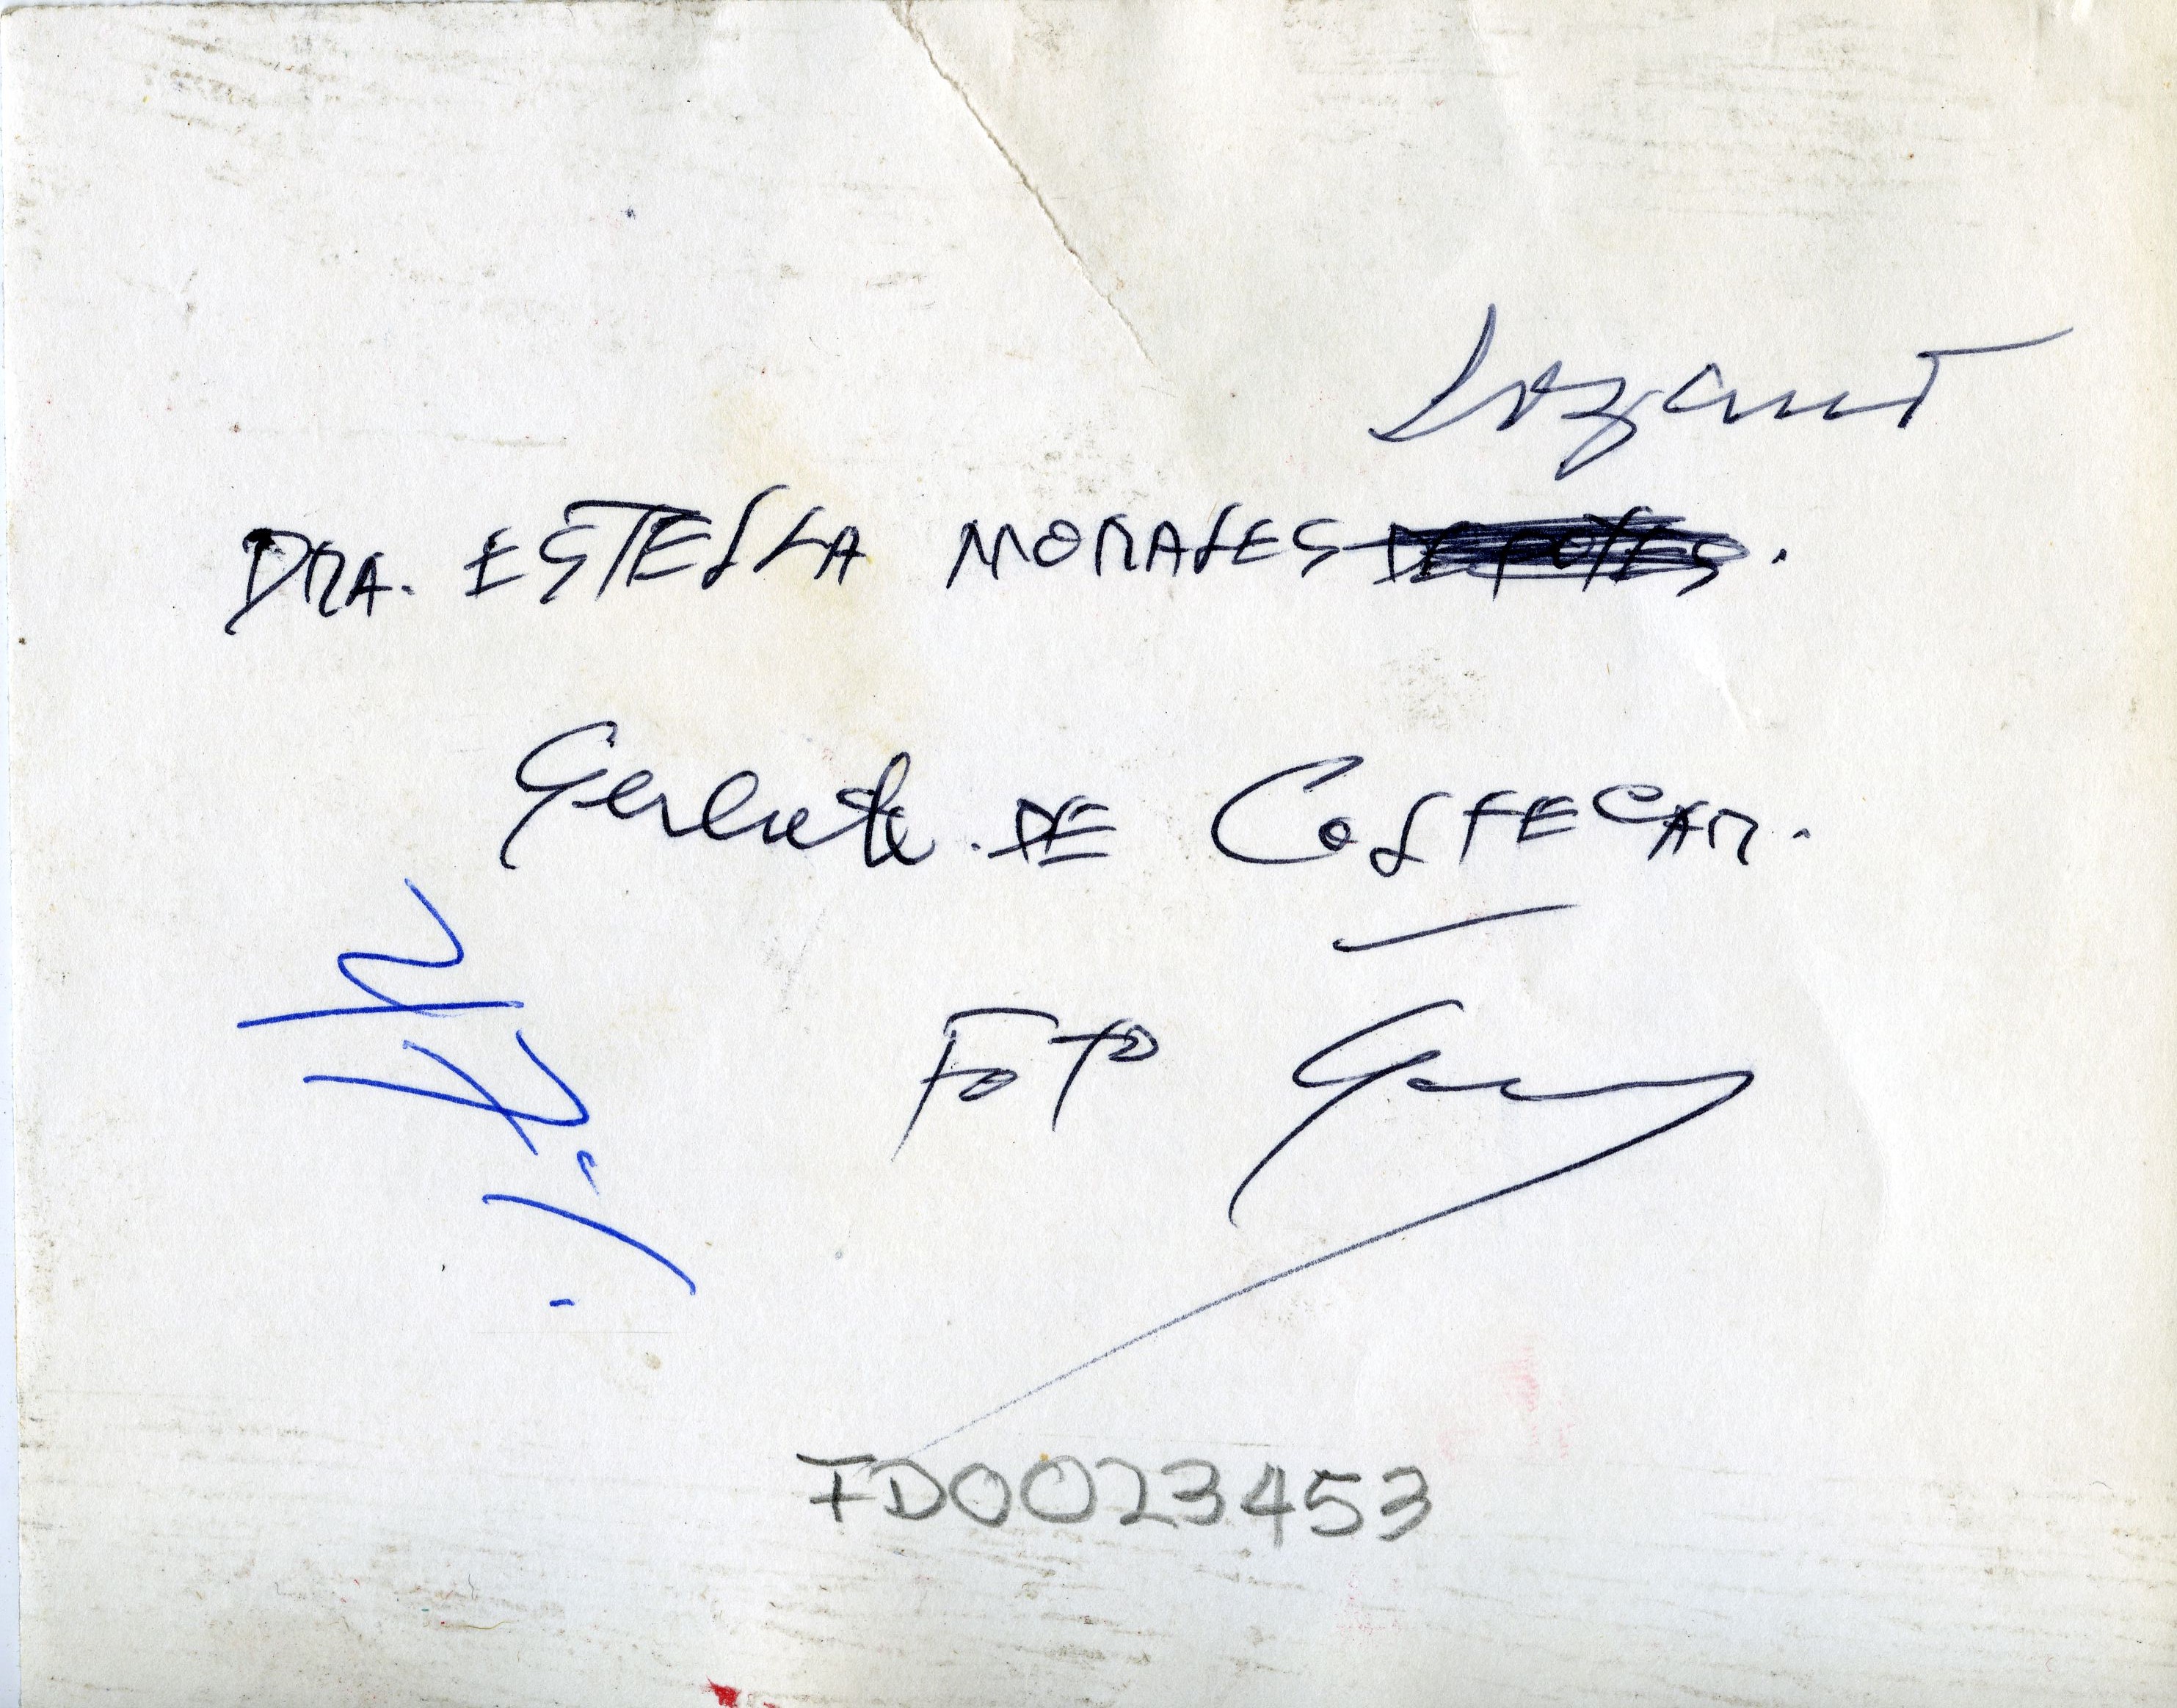 Lozano
DRA. ESTELLA MORALES DE POTES.
Gerente. DE COLFECAR.
FOTO
FD0023453